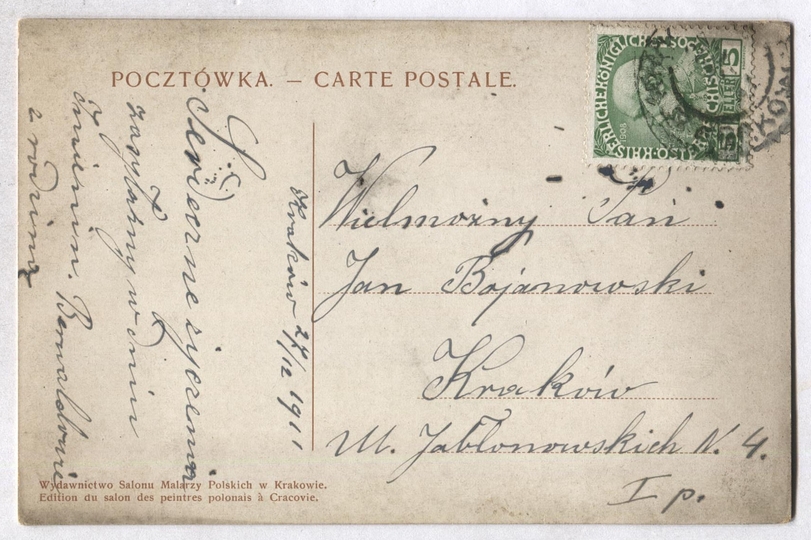 POCZTÓWKA. — CARTE POSTALE.
Kraków 27/12 1911
Serdeczne życzenia
zasyłamy w dniu
Imienin.
z rodziną
Wielmożny Pan
Jan Bojanowski
Kraków
Ul. Jabłonowskich N. 4.
I p.
Wydawnictwo Salonu Malarzy Polskich w Krakowie.
Edition du salon des peintres polonais à Cracovie.
1908
5 5